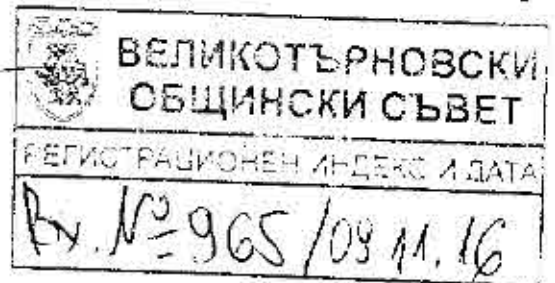 ВЕЛИКОТЪРНОВСКИ
ОБЩИНСКИ СЪВЕТ
РЕГИСТРАЦИОНЕН ИНДЕКС И ДАТА
Вх. № 965/09.11.16